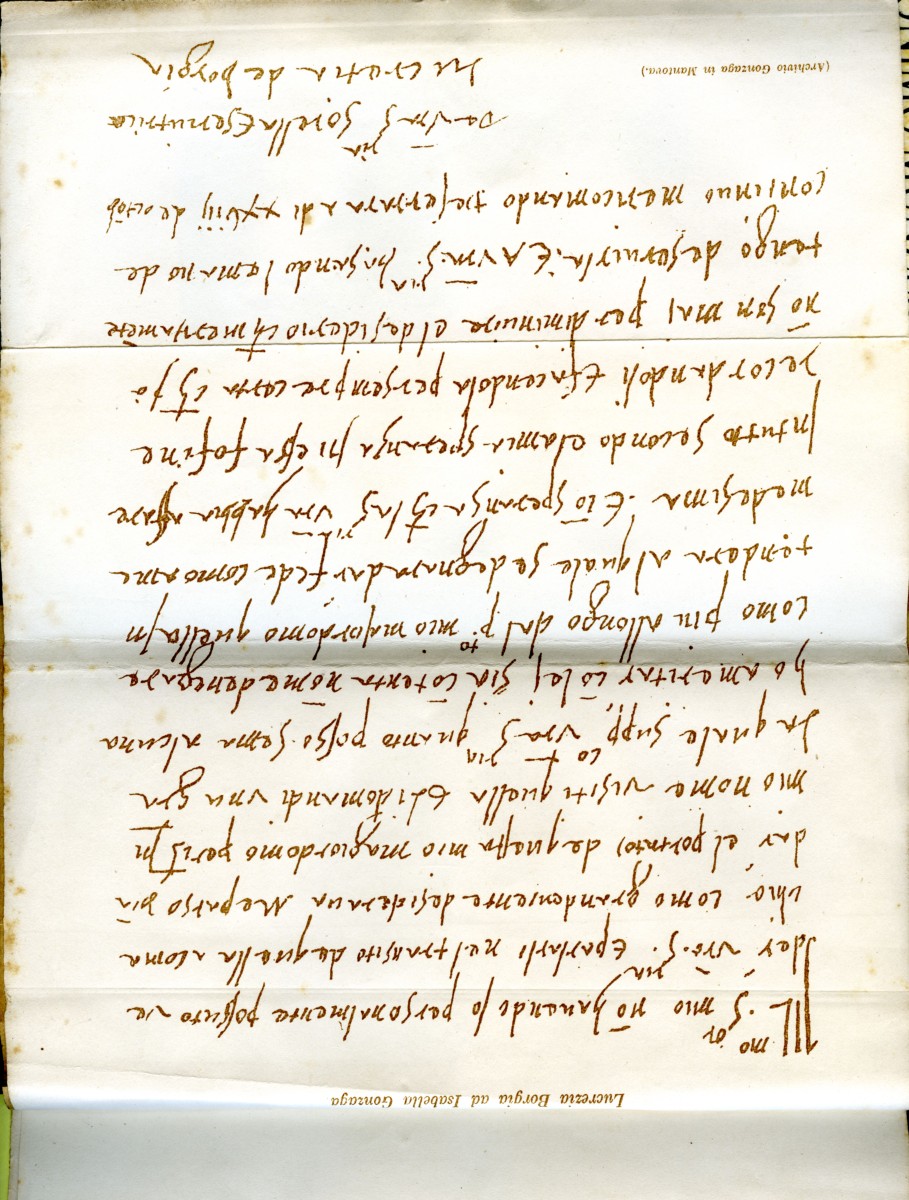 Lucrezia Borgia ad Isabella Gonzaga
Ill.mo S.or mio nō havendo Io personalmente possuto ve
der vra S.ria E parlarli nel transito de quella a Roma
como grandemente desiderava Me parso p̄ia
dar el portator de questa mio magiordomo perch̄ In
mio nome visiti quella E li domandi una gra
La quale suppco vra S.ria quanto posso senza alcuna
ho a meritar cō lej sia cōtenta nōme denegare
como piu allongo dal p.to mio majordomo quella In
tendera al quale se degnara dar fede como a me
medesima. E iō speranza ch̄ la S.ria vra habbia a fare
In tutto secondo e la mia speranza Ni essa
recordandoli E facendola per sempre certa ch̄
nō son maj per diminuire el desiderio ch̄ meritamēte
tengo de servirla. E A vra S.ria basando la mano de
continuo me ricomando de ferrara a di xxviij de octob
De vra S.ria Sorella E servitrice
Lucretia de borgia
(Archivio Gonzaga in Mantova.)